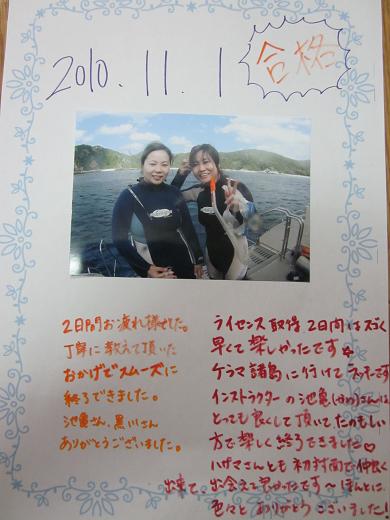 2010.11.1
合格
2日間お疲れ様でした。
丁寧に教えて頂いた
おかげでスムーズに
終了できました。
池亀さん、黒川さん
ありがとうございました。
ライセンス取得 2日間はスゴく
早くて楽しかったです☆
ケラマ諸島に行けてラッキーです
インストラクターの池亀さんは
とっても良くして頂いてたのもしい
方で楽しく終了できました♡
ハザマさんとも初対面で仲良く
出来て、出会えて良かったです〜ほんとに
色々とありがとうございました!